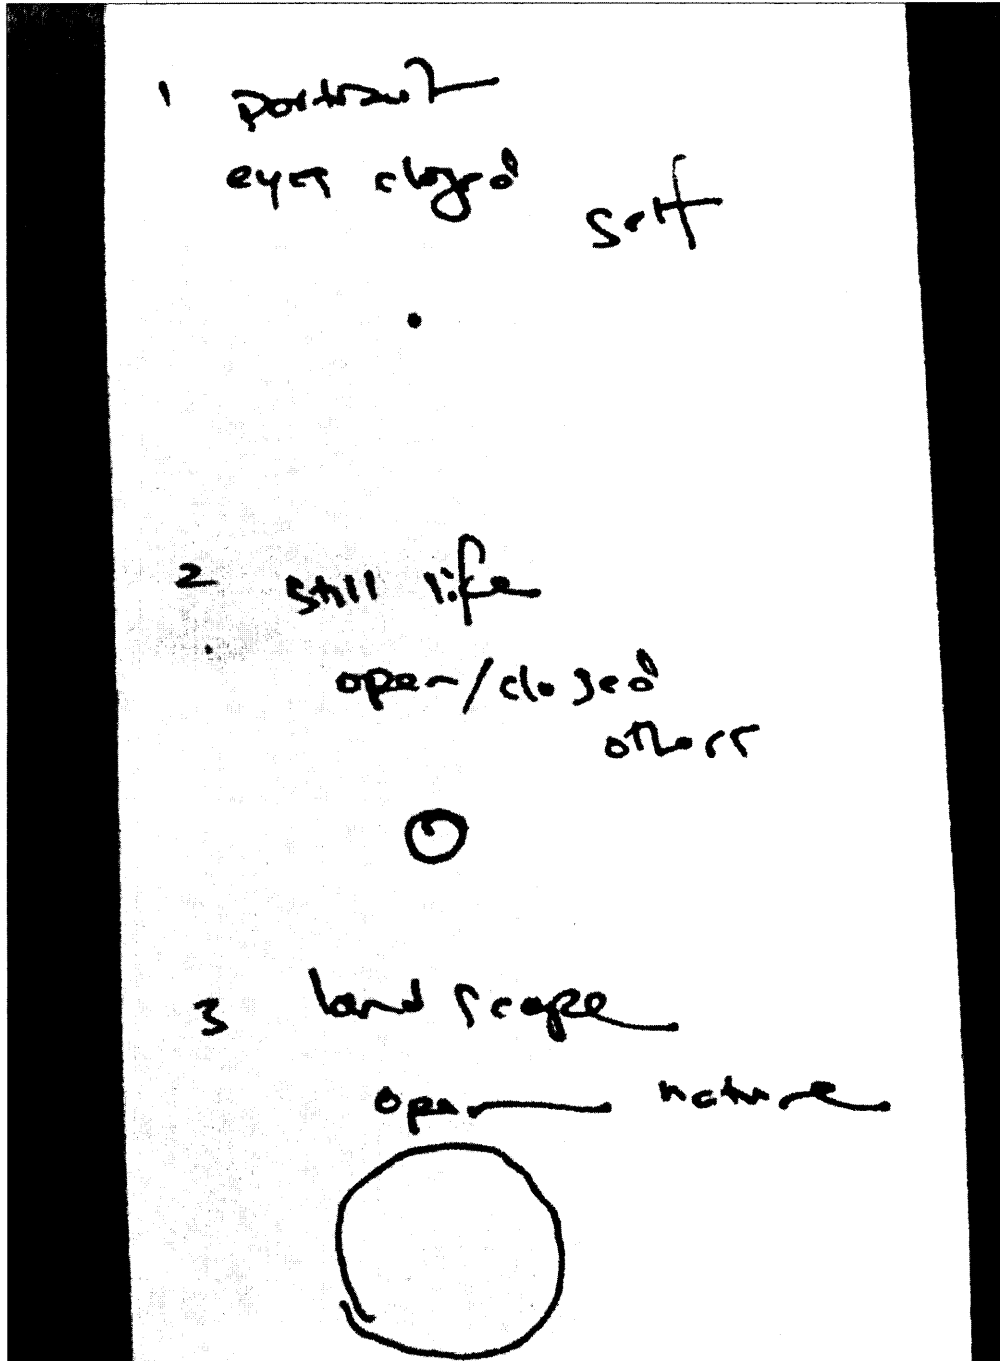 1 portrait
eyes closed
self
2 still life
open/closed
others
3 landscape
open nature